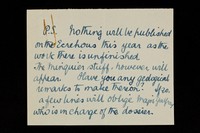 P.S. Nothing will be published
on the Ecrehous this year as the
work there is unfinished.
The Minquier stuff, however will
appear. Have you any geological
remarks to make thereon? If so
a few lines will oblige Major
who is in charge of the dossier.